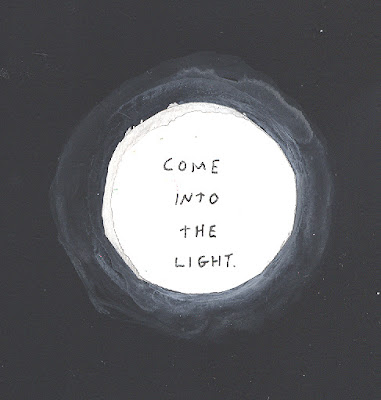 COME
INTO
THE
LIGHT.